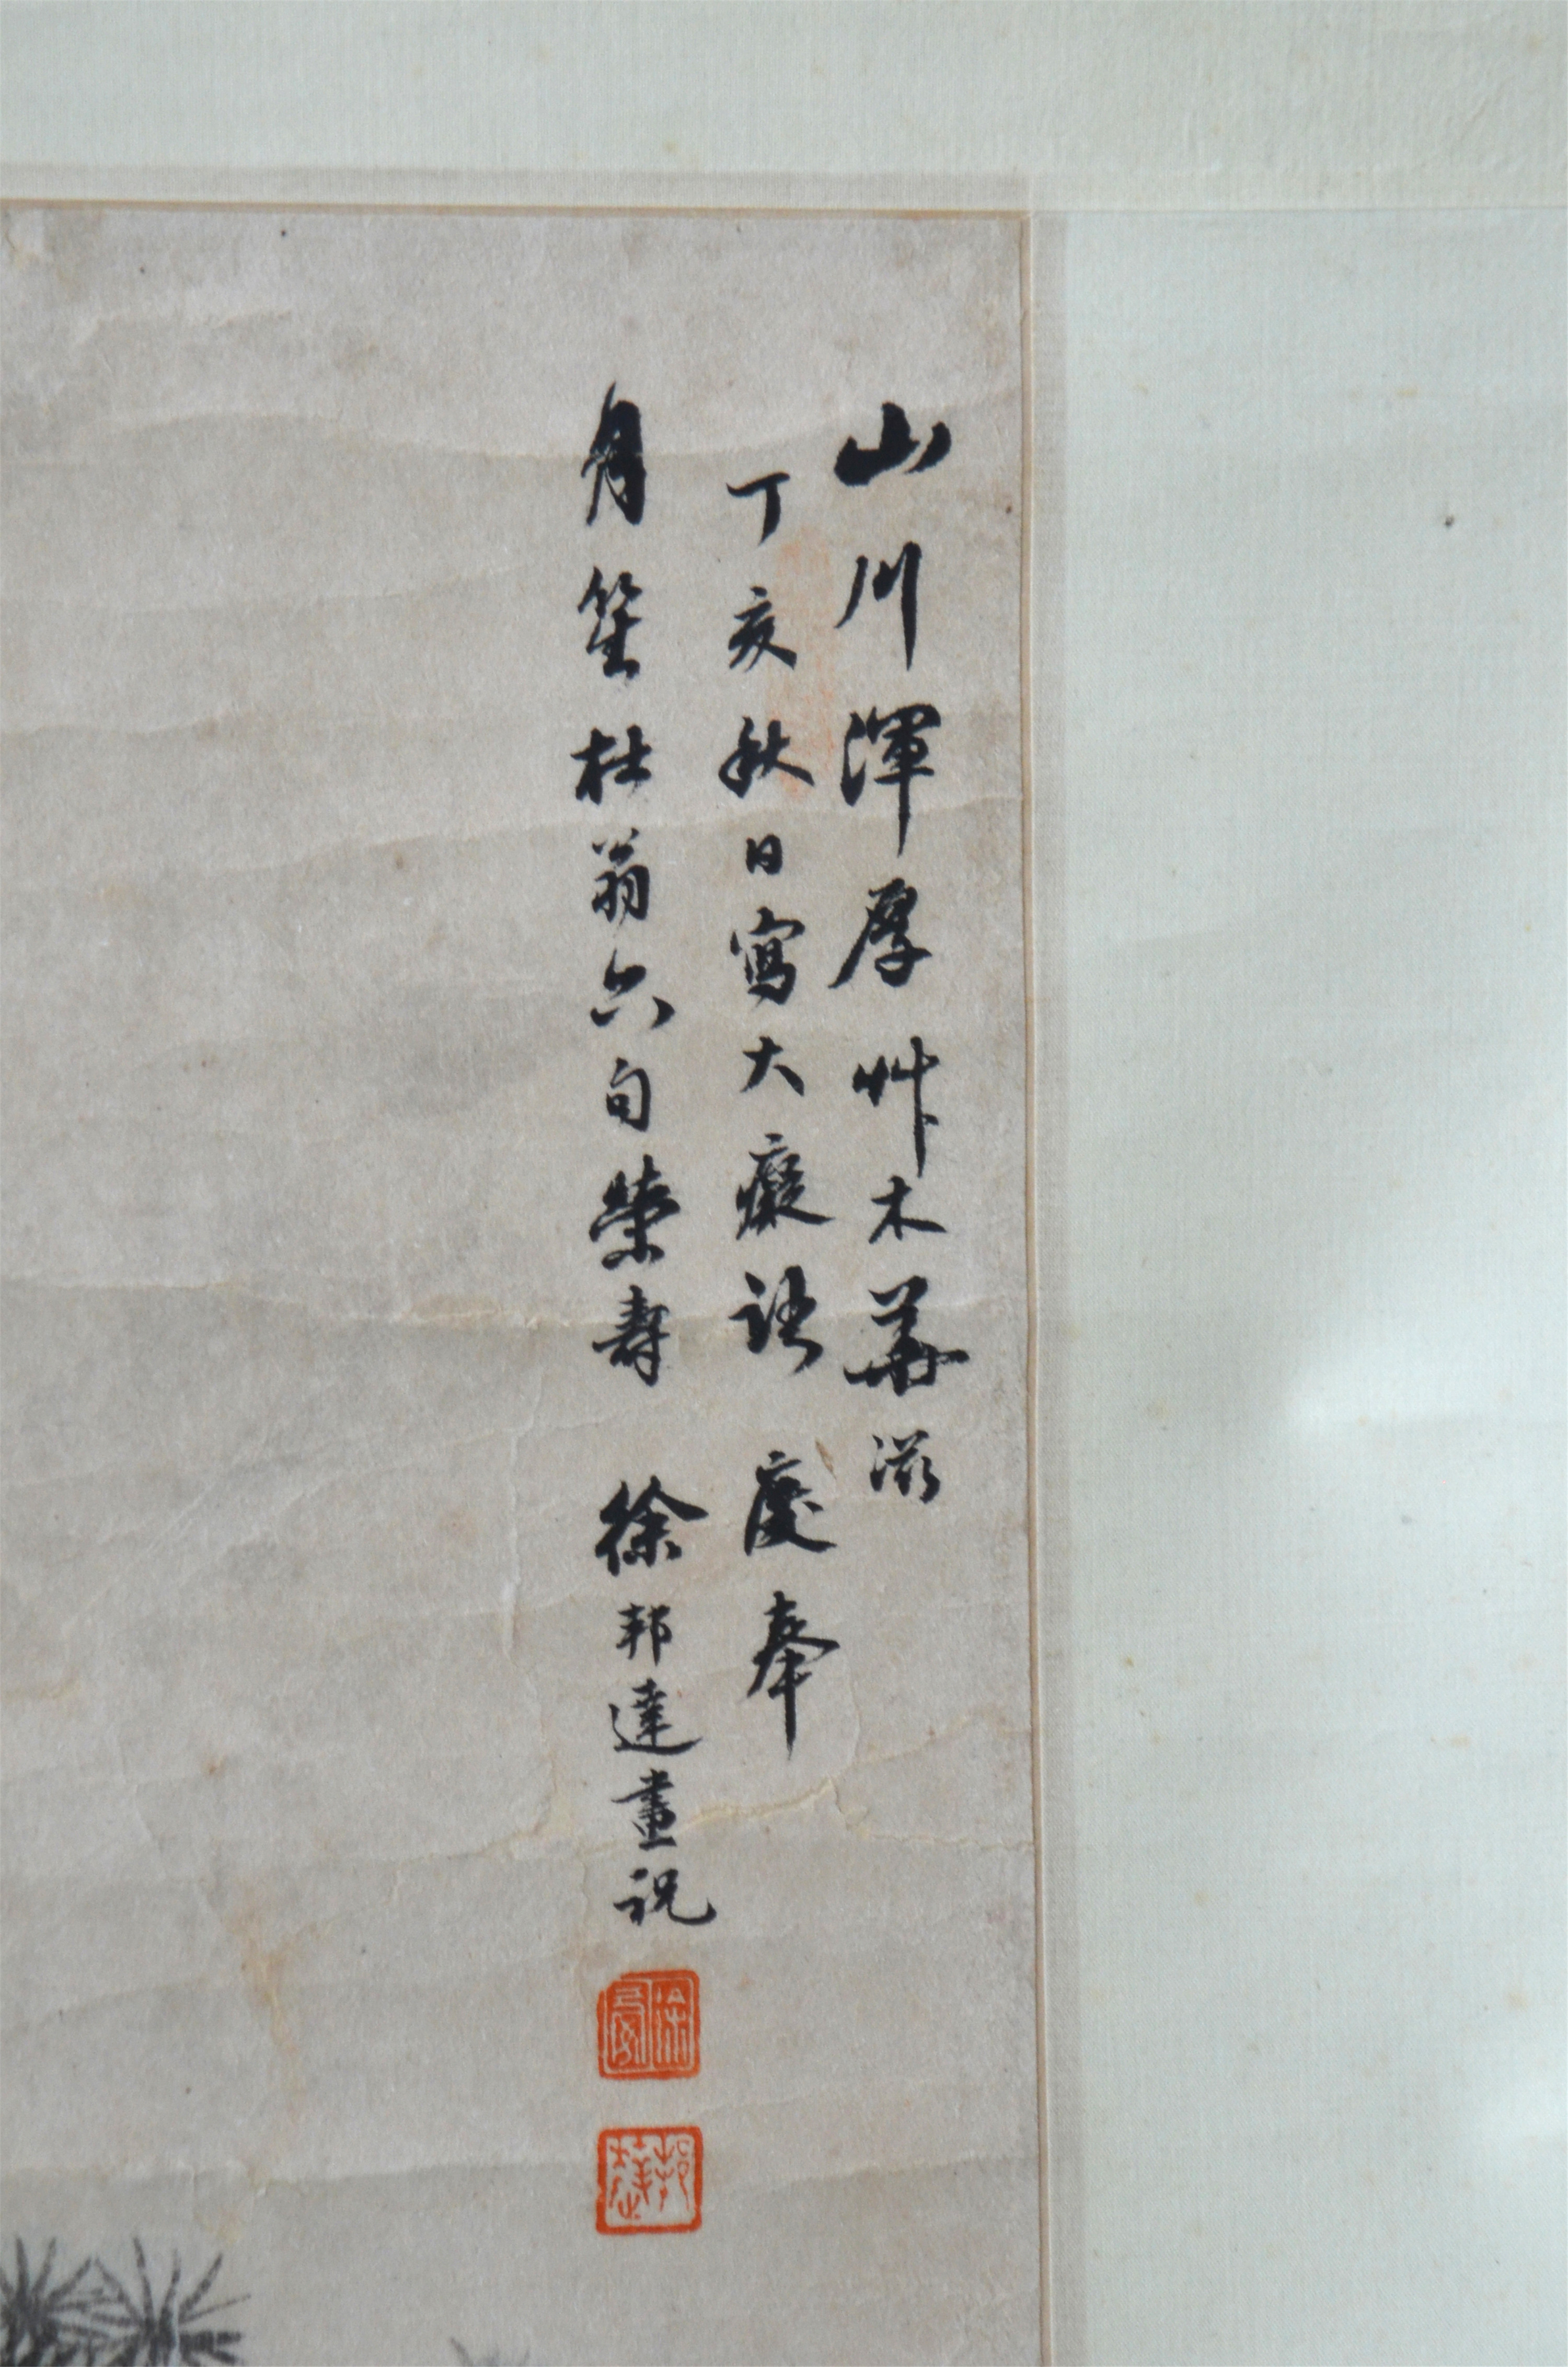 山川渾厚艸木華滋
丁亥秋日寫大癡語 慶奉
月笙杜翁六旬榮壽 徐邦達畫祝
邦達